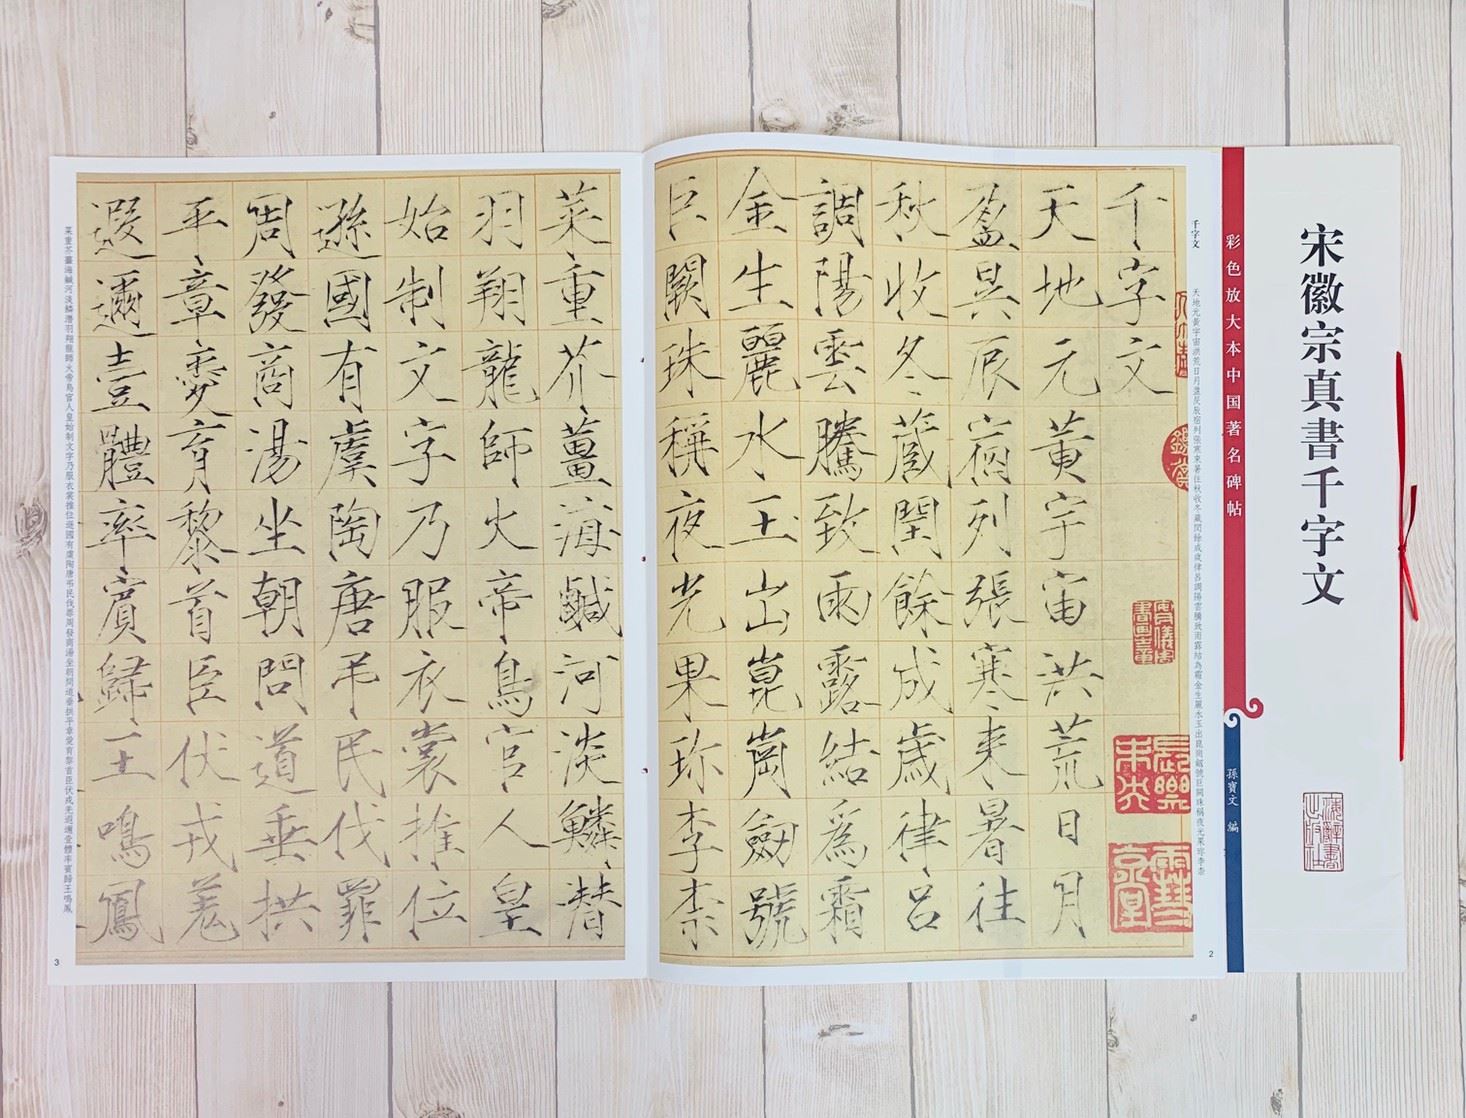 宋徽宗真書千字文
彩色放大本中国著名碑帖
孫寶文 編
千字文 天地元黃宇宙洪荒日月盈昃辰宿列張寒来暑往秋收冬蔵閏餘成歲律吕調陽雲騰致雨露結為霜金生麗水玉出崑崗劒號巨闕珠稱夜光果珍李柰
千字文
天地元黃宇宙洪荒日月
盈昃辰宿列張寒来暑往
秋收冬蔵閏餘成歲律吕
調陽雲騰致雨露結爲霜
金生麗水玉出崑崗劒號
巨闕珠稱夜光果珎李柰
2
菜重芥薑海鹹河淡鱗潛
羽翔龍師火帝鳥官人皇
始制文字乃服衣裳推位
遜國有虞陶唐弔民伐罪
周發商湯坐朝問道垂拱
平章愛育黎首臣伏戎羌
遐邇壹體率賓歸王鳴鳳
菜重芥薑海鹹河淡鱗潛羽翔龍師火帝鳥官人皇始制文字乃服衣裳推位遜國有虞陶唐弔民伐罪周發商湯坐朝問道垂拱平章愛育黎首臣伏戎羌遐邇壹體率賓歸王鳴鳳
3